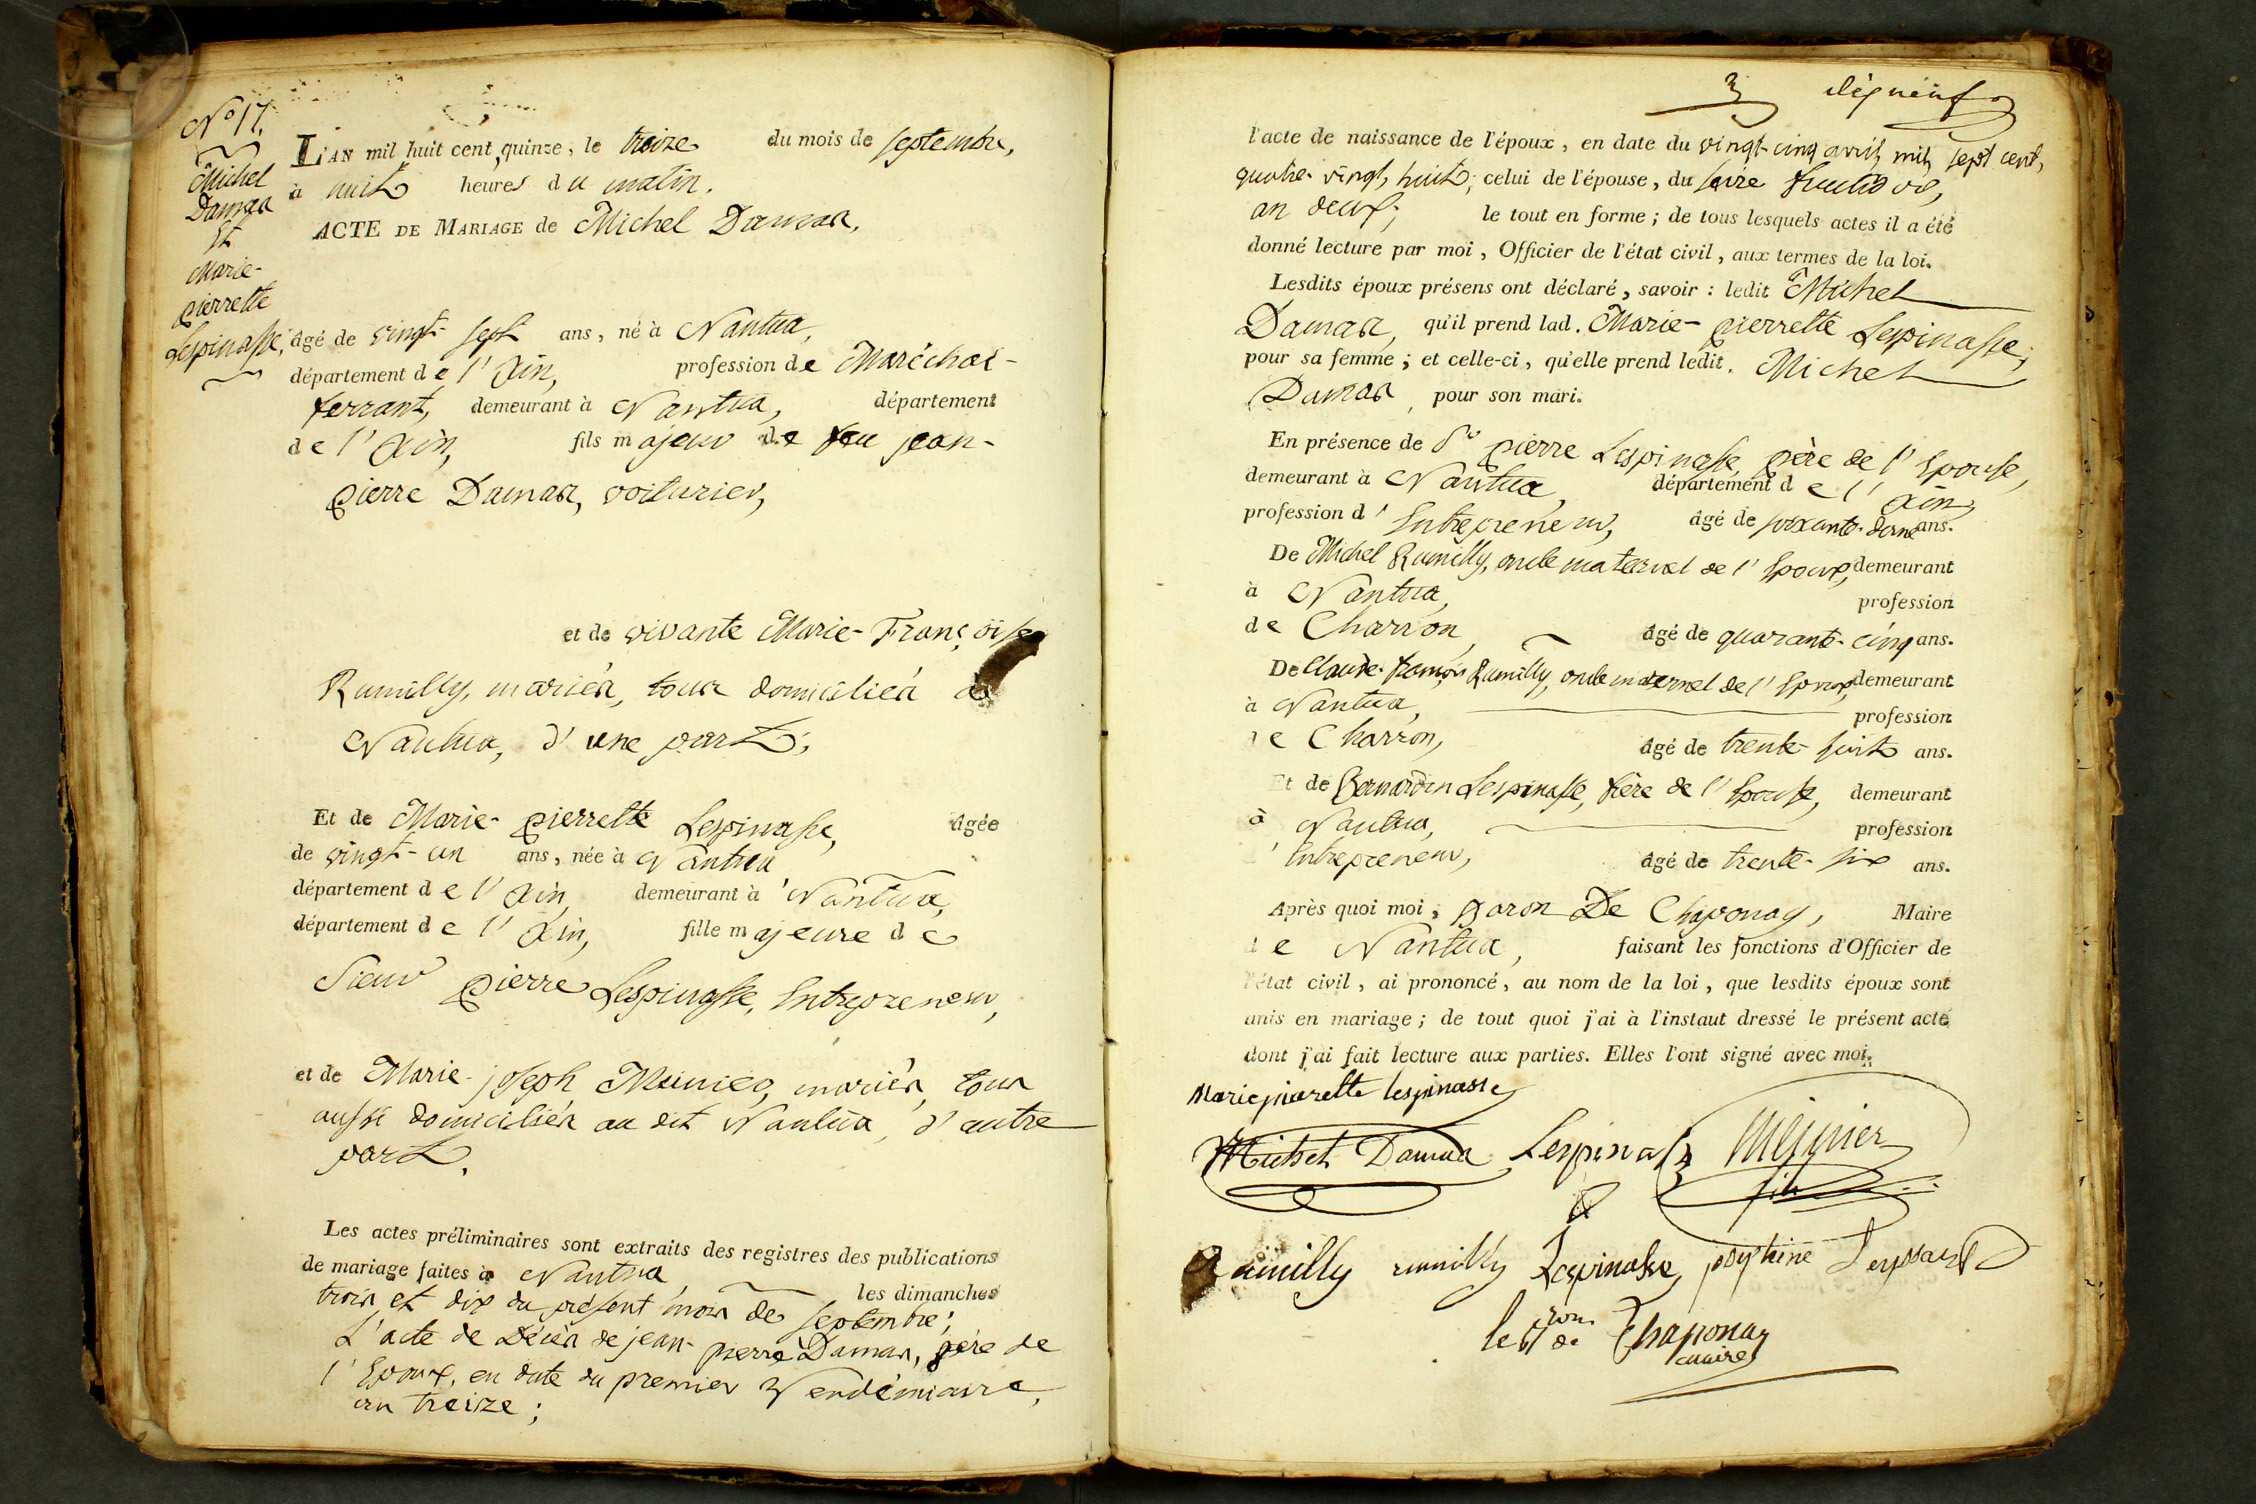 N.º 17.
Michel
Damas
Et
Marie-
pierrette
Lespinasse.
L'AN mil huit cent quinze, le treize du mois de septembre,
à huit heures du matin.
ACTE DE MARIAGE de Michel Damas,
âgé de vingt-sept ans, né à Nantua,
département de l'Ain, profession de Maréchal-
ferrant, demeurant à Nantua, département
de l'Ain, fils majeur de feu jean-
pierre Damas, voiturier,
et de vivante Marie-Françoise
Rumilly, mariés, tous domiciliés à
Nantua, d'une part;
Et de Marie-pierrette Lespinasse, âgée
de vingt-un ans, née à Nantua
département de l'Ain, demeurant à Nantua,
département de l'Ain, fille majeure de
Sieur pierre Lespinasse, Entrepreneur,
et de Marie-joseph Munier, mariés, tous
aussi domiciliés au dit Nantua, d'autre
part.
Les actes préliminaires sont extraits des registres des publications
de mariage faites à Nantua, les dimanches
trois et dix du présent mois de septembre;
L'acte de Décès de jean-pierre Damas, père de
l'Epoux, en date du premier Vendémiaire,
an treize;
dixneuf
l'acte de naissance de l'époux, en date du vingt-cinq avril mil sept cent,
quatre-vingt, huit; celui de l'épouse, du seize fructidor,
an deux; le tout en forme; de tous lesquels actes il a été
donné lecture par moi, Officier de l'état civil, aux termes de la loi.
Lesdits époux présens ont déclaré, savoir: ledit Michel
Damas, qu'il prend lad. Marie-pierrette Lespinasse,
pour sa femme; et celle-ci, qu'elle prend ledit. Michel
Damas, pour son mari.
En présence de Sr pierre Lespinasse, père de l'Epouse,
demeurant à Nantua, département de l'Ain,
profession d'Entrepreneur, âgé de soixante- ans.
De Michel Rumilly, oncle maternel de l'Epoux, demeurant
à Nantua, profession
de Charron, âgé de quarante-cinq ans.
De Claude-françois Rumilly, oncle maternel de l'Epoux, demeurant
à Nantua, profession
de Charron, âgé de trente-huit ans.
Et de Bernardin Lespinasse, frère de l'Epouse, demeurant
à Nantua, profession
d'Entrepreneur, âgé de trente-six ans.
Après quoi moi, Baron De Chaponay, Maire
de Nantua, faisant les fonctions d'Officier de
l'état civil, ai prononcé, au nom de la loi, que lesdits époux sont
unis en mariage; de tout quoi j'ai à l'instaut dressé le présent acte
dont j'ai fait lecture aux parties. Elles l'ont signé avec moi.
Marie piarette lespinasse
Michel Damas Lespinasse
fils
Rumilly rumilly Lespinasse josephine
le Bron de Chaponay
maire